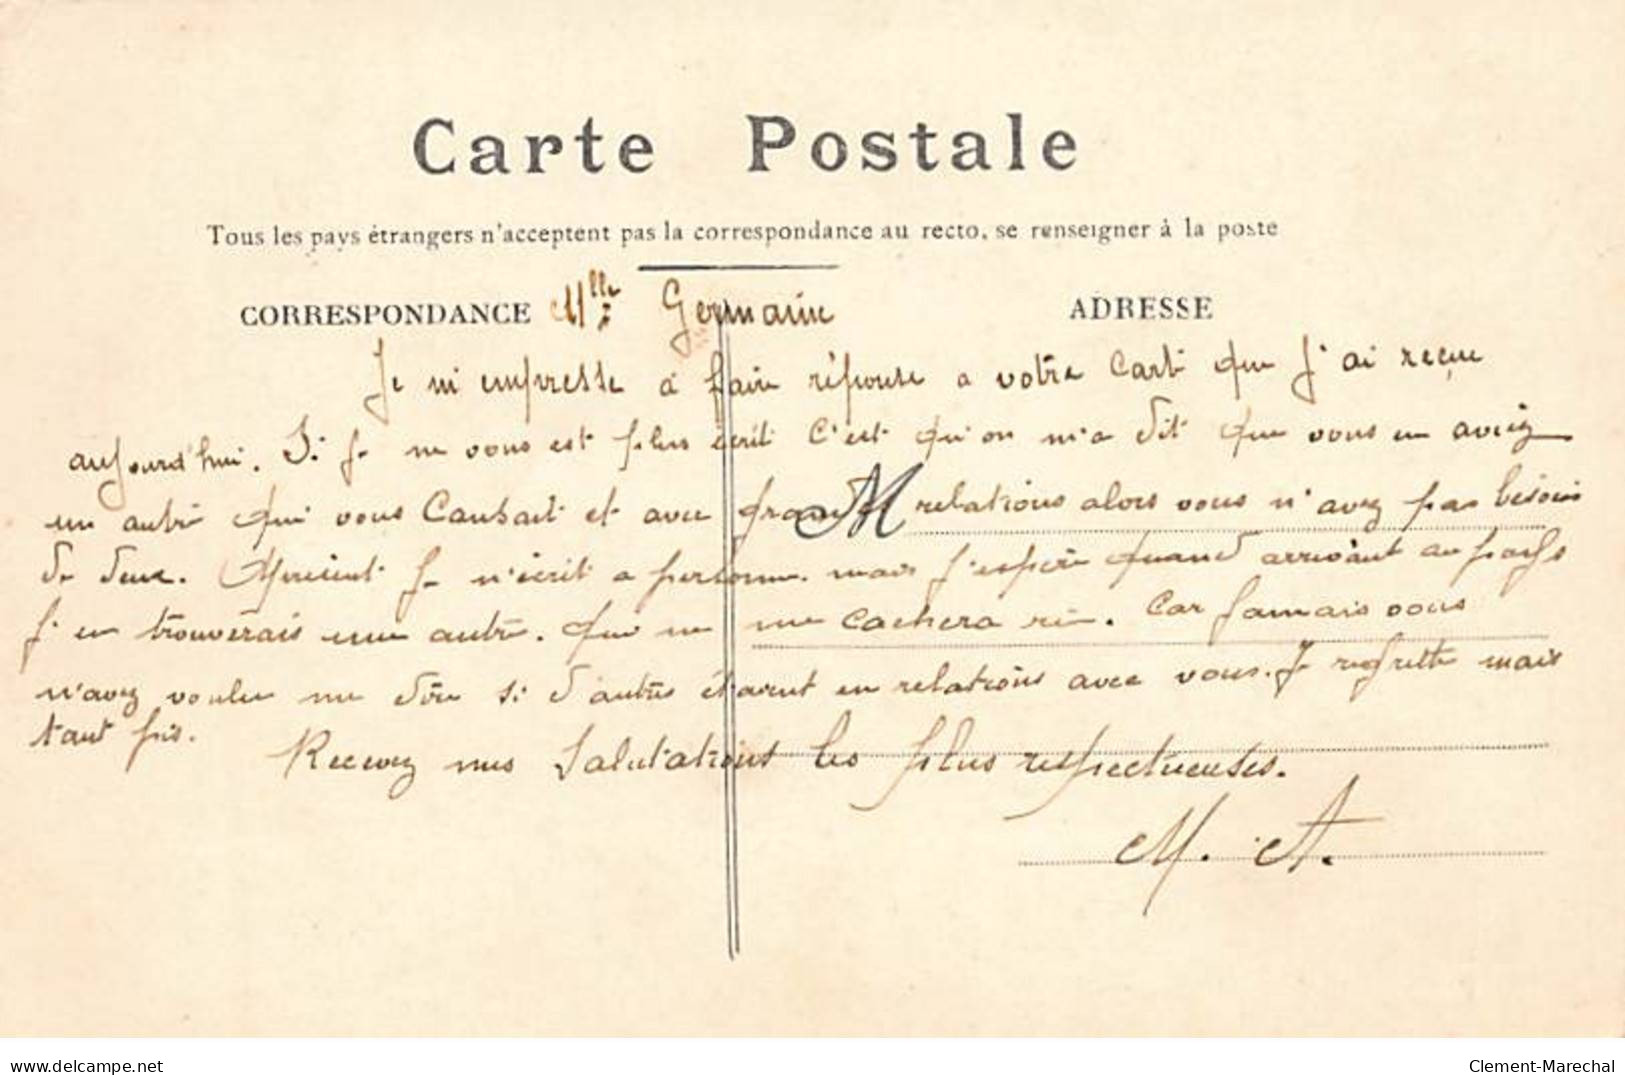 Carte Postale
Tous les pays étrangers n'acceptent pas la correspondance au recto, se renseigner à la poste
CORRESPONDANCE Mlle Germaine ADRESSE
Je m'empresse a faire réponse a votre Carte que j'ai reçue
aujourd'hui. Si je ne vous est plus écrit C'est qu'on m'a dit que vous en aviez
un autre qui vous Causait et avec grande relations alors vous n'avez pas besoin
de deux. Apresent je n'écrit a personne. mais j'espère quand arrivant au pays
j'en trouverais une autre. que ne me cachera rien. Car jamais vous
n'avez voulu me dire si d'autres étaient en relations avec vous. Je regrette mais
tant pis. Recevez mes Salutations les plus respectueuses.
M. A.
delcampe.net
Clement-Marechal